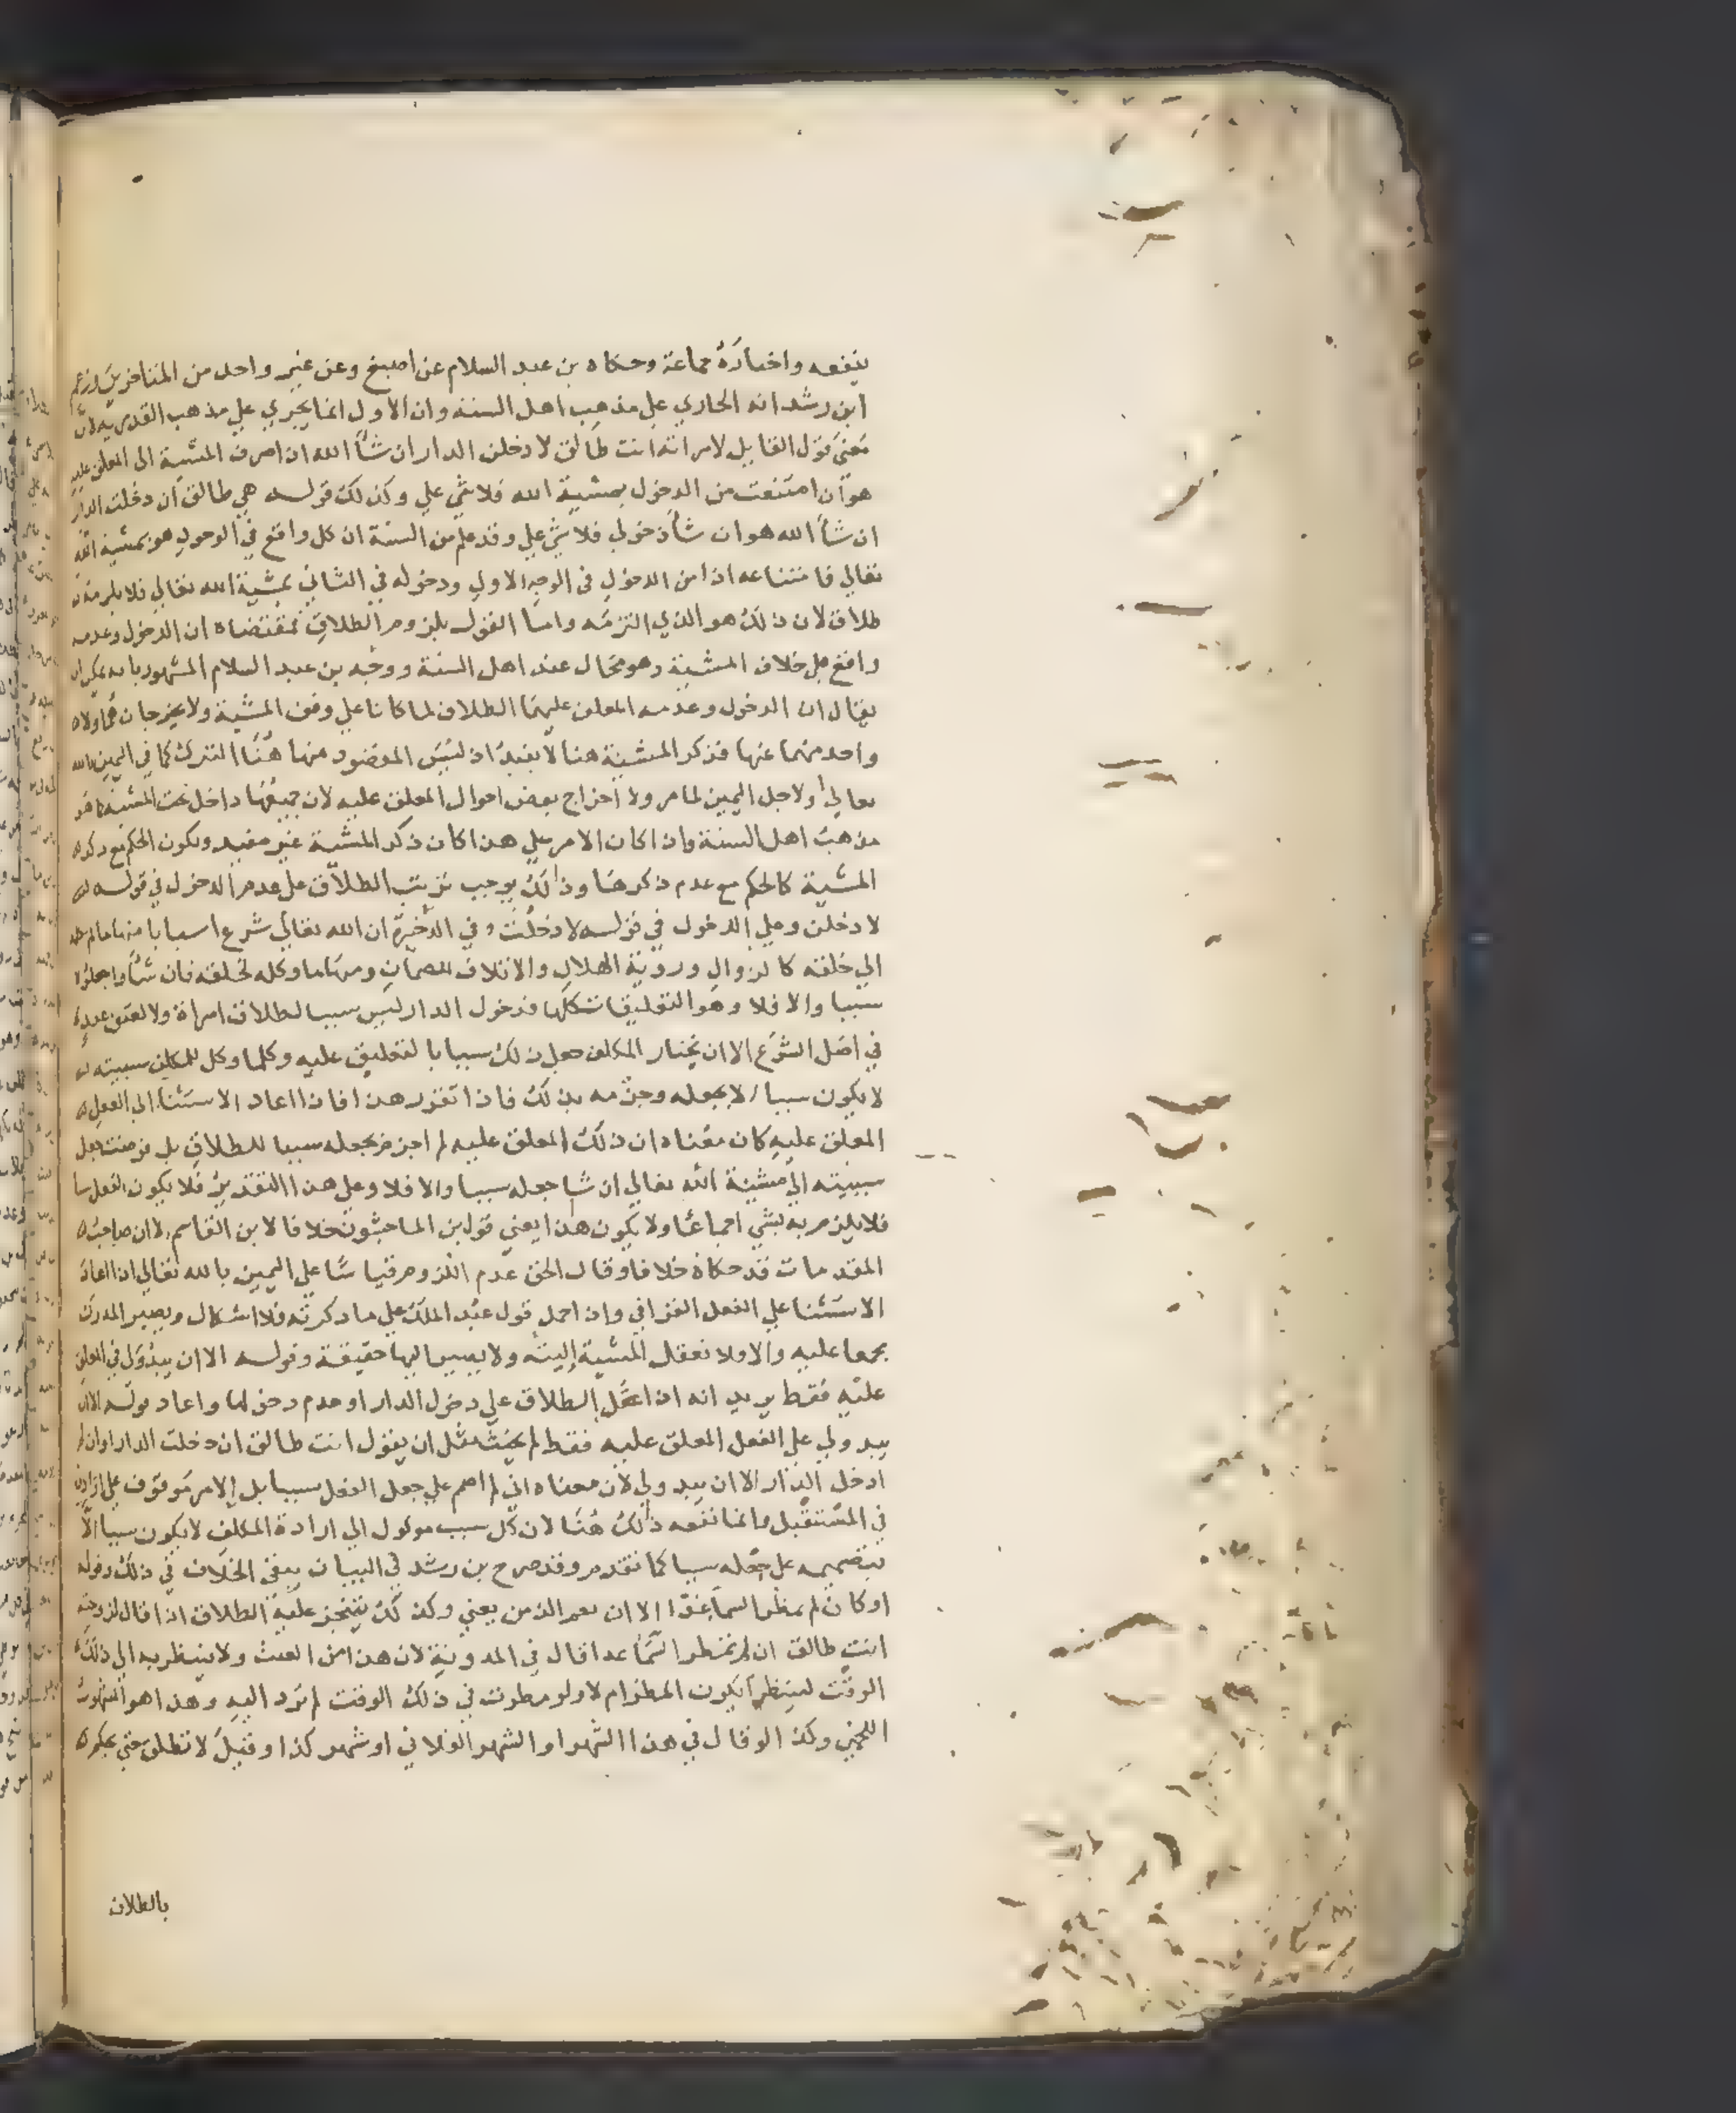 ينفعه واختاره جماعة وحكاه بن عبد السلام عن اصبغ وعن غير واحد من المتاخرين وزعم
ابن رشد انه الجاري علي مذهب اهل السنه وان الاول انما يجري علي مذهب القدريه لان
معني قول القايل لامراته انت طالق لا دخلن الدار ان شأ الله ان اصرف المشية الي المعلق عليه
هو ان امتنعت من الدخول بمشية الله فلا شي علي وكذلك قوله هي طالق ان دخلت الدار
ان شأ الله هو ان شأ دخولي فلا شي علي وقد علم من السنة ان كل واقع في الوجود هو بمشية الله
تعالي فامتناعه اذا من الدخول في الوجه الاول ودخوله في الثاني بمشية الله تعالي فلا يلزمه
طلاق لان ذلك هو الذي التزمه واما القول بلزوم الطلاق فمقتضاه ان الدخول وعدمه
واقع علي خلاف المشية وهو محال عند اهل السنة ووجه بن عبد السلام المشهور بانه يمكن ان
يقال ان الدخول وعدمه المعلق عليهما الطلاق لما كانا علي وفق المشية ولا يخرجان هما ولا
واحد منهما عنها فذكر المشية هنا لا يفيد اذ ليس المقصود منها هنا التبرك كما في اليمين بالله
تعالي او لاجل اليمين لما مر ولا اخراج بعض احوال المعلق عليه لان جميعها داخل تحت المشية كما هو
مذهب اهل السنة واذا كان الامر علي هذا كان ذكر المشية غير مفيد ويكون الحكم مع ذكر
المشية كالحكم مع عدم ذكرها وذلك يوجب ترتيب الطلاق علي عدم الدخول في قوله
لا دخلن وعلي الدخول في قوله لا دخلت وفي الذخيرة ان الله تعالي شرع اسبابا منها ما لم يكله
الي خلقه كالزوال وروية الهلال والاتلاف للضمان ومنها ما وكله لخلقه فان شأوا جعلوه
سببا والا فلا وهو التعليقات كلها فدخول الدار ليس سببا لطلاق امراة ولا لعتق عبد
في اصل الشرع الا ان يختار المكلف جعل ذلك سببا بالتعليق عليه وكلما وكل للمكلف سببيته
لا يكون سببا الا بجعله وجزمه بذلك فاذا تقرر هذا فاذا اعاد الاستثنا الي الفعل
المعلق عليه كان معناه ان ذلك المعلق عليه لم اجزم بجعله سببا للطلاق بل فوضت جعل
سببيته الي مشية الله تعالي ان شا جعله سببا والا فلا وعلي هذا التقدير فلا يكون الفعل سببا
فلا يلزم به شي اجماعا ولا يكون هذا يعني قول بن الماجشون خلافا لابن القاسم لان صاحب
المقدمات قد حكاه خلافا وقال الحق عدم اللزوم قياسا علي اليمين بالله تعالي اذا اعاد
الاستثنا علي الفعل القرافي واذا حمل قول عبد الملك علي ما ذكرته فلا اشكال ويصير المدرك
مجمعا عليه والا فلا تعقل المشية البتة ولا يصير اليها حقيقة وقوله الا ان يبدو لي في المعلق
عليه فقط يريد انه اذا علق الطلاق علي دخول الدار او عدم دخولها واعاد قوله الا ان
يبدو لي علي الفعل المعلق عليه فقط لم يحنث مثل ان يقول انت طالق ان دخلت الدار او ان لم
ادخل الدار الا ان يبدو لي لان معناه اني لم اصمم علي جعل الفعل سببا بل الامر موقوف علي ارادتي
في المستقبل وانما نفعه ذلك هنا لان كل سبب موكول الي ارادة المكلف لا يكون سببا الا
بتصميمه علي جعله سببا كما تقدم وقد صرح بن رشد في البيان بنفي الخلاف في ذلك وقوله
او كان لم تمطر السماء غدا الا ان يعم الزمن يعني وكذلك يتنجز عليه الطلاق اذا قال لزوجته
انت طالق ان لم تمطر السماء غدا قال في المدونة لان هذا من الغيب ولا ينتظر به الي ذلك
الوقت لينظر ايكون المطر ام لا ولو مطرت في ذلك الوقت لم ترد اليه وهذا هو المشهور
اللخمي وكذا لو قال في هذا الشهر او الشهر الفلاني او شهر كذا وقيل لا تطلق حتي يحكم
بالطلاق